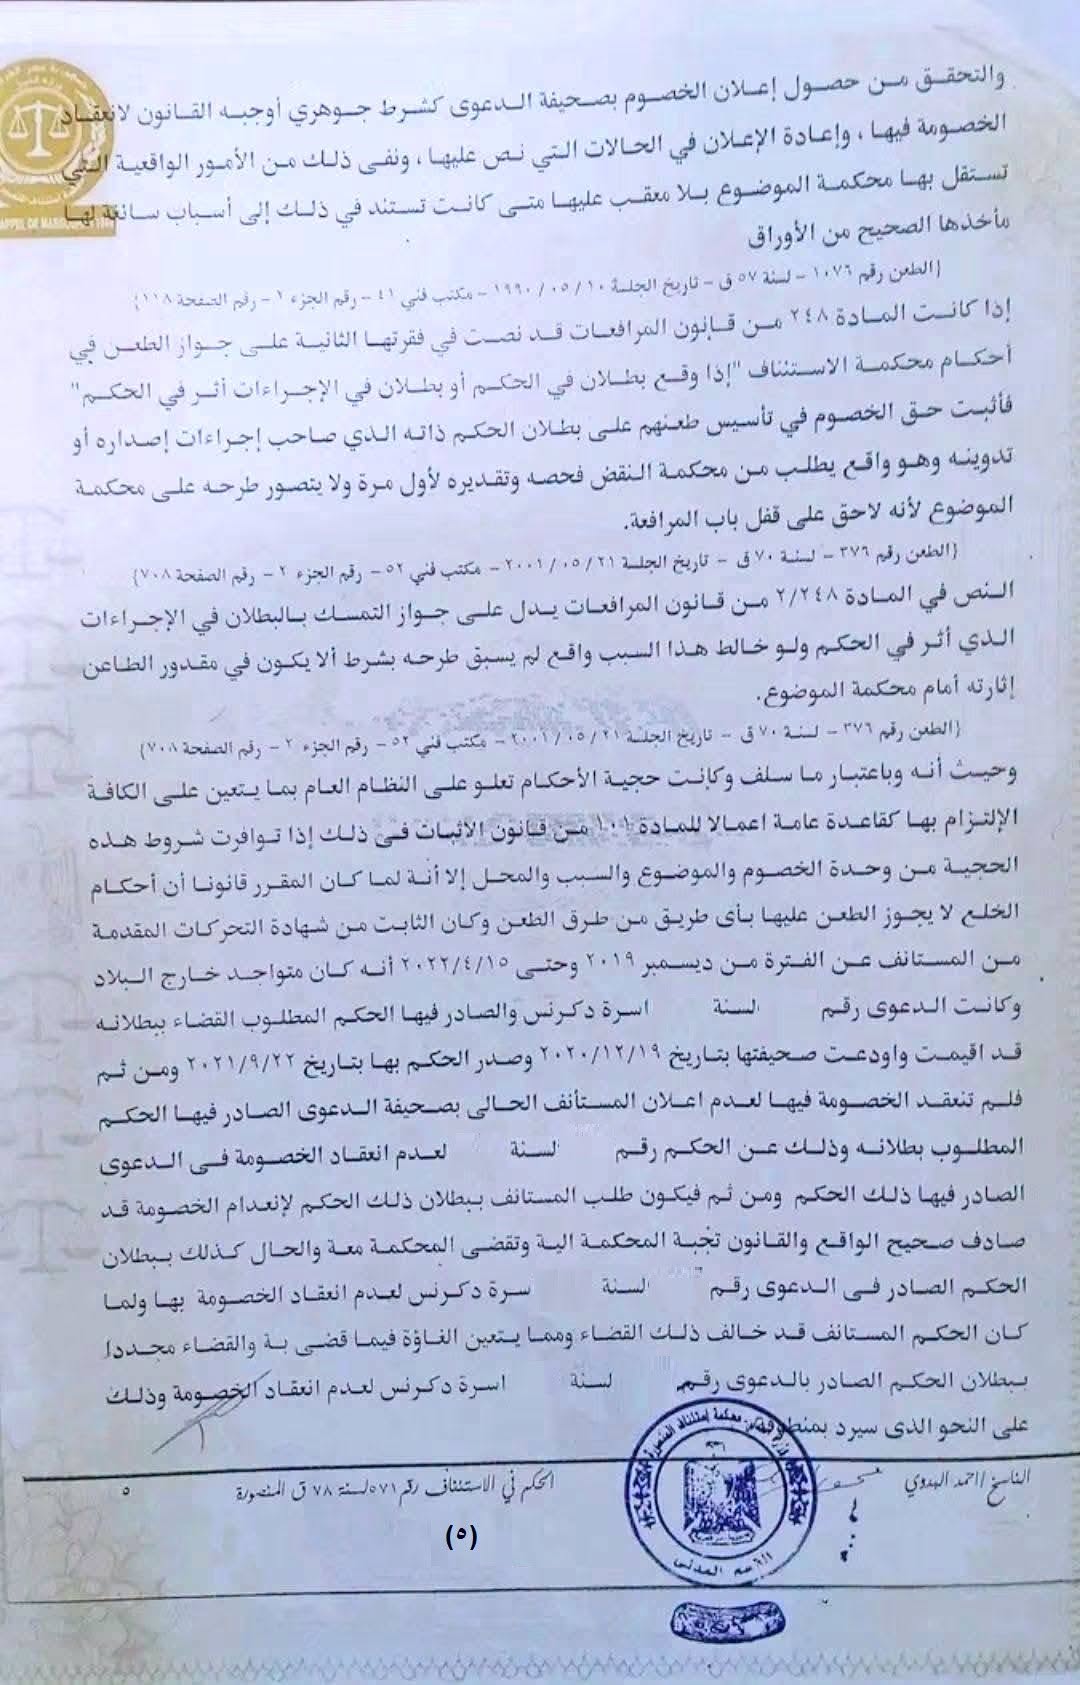 والتحقق من حصول إعلان الخصوم بصحيفة الدعوى كشرط جوهري أوجبه القانون لانعقاد
الخصومة فيها ، وإعادة الإعلان في الحالات التي نص عليها ، ونفى ذلك من الأمور الواقعية التي
تستقل بها محكمة الموضوع بلا معقب عليها متى كانت تستند في ذلك إلى أسباب سائغة لها
مأخذها الصحيح من الأوراق
(الطعن رقم ١٠٧٦ - لسنة ٥٧ ق - تاريخ الجلسة ١٠ / ٠٥ / ١٩٩٠ - مكتب فني ٤١ - رقم الجزء ١ - رقم الصفحة ١١٨)
إذا كانت المادة ٢٤٨ من قانون المرافعات قد نصت في فقرتها الثانية على جواز الطعن في
أحكام محكمة الاستئناف "إذا وقع بطلان في الحكم أو بطلان في الإجراءات أثر في الحكم"
فأثبت حق الخصوم في تأسيس طعنهم على بطلان الحكم ذاته الذي صاحب إجراءات إصداره أو
تدوينه وهو واقع يطلب من محكمة النقض فحصه وتقديره لأول مرة ولا يتصور طرحه على محكمة
الموضوع لأنه لاحق على قفل باب المرافعة.
(الطعن رقم ٣٧٦ - لسنة ٧٠ ق - تاريخ الجلسة ٢١ / ٠٥ / ٢٠٠١ - مكتب فني ٥٢ - رقم الجزء ٢ - رقم الصفحة ٧٠٨)
النص في المادة ٢/٢٤٨ من قانون المرافعات يدل على جواز التمسك بالبطلان في الإجراءات
الذي أثر في الحكم ولو خالط هذا السبب واقع لم يسبق طرحه بشرط ألا يكون في مقدور الطاعن
إثارته أمام محكمة الموضوع.
(الطعن رقم ٣٧٦ - لسنة ٧٠ ق - تاريخ الجلسة ٢١ / ٠٥ / ٢٠٠١ - مكتب فني ٥٢ - رقم الجزء ٢ - رقم الصفحة ٧٠٨)
وحيث أنه وباعتبار ما سلف وكانت حجية الأحكام تعلو على النظام العام بما يتعين على الكافة
الإلتزام بها كقاعدة عامة اعمالا للمادة ١٠١ من قانون الاثبات فى ذلك إذا توافرت شروط هذه
الحجية من وحدة الخصوم والموضوع والسبب والمحل إلا أنة لما كان المقرر قانونا أن أحكام
الخلع لا يجوز الطعن عليها بأى طريق من طرق الطعن وكان الثابت من شهادة التحركات المقدمة
من المستانف عن الفترة من ديسمبر ٢٠١٩ وحتى ٢٠٢٢/٤/١٥ أنه كان متواجد خارج البلاد
وكانت الدعوى رقم لسنة اسرة دكرنس والصادر فيها الحكم المطلوب القضاء ببطلانه
قد اقيمت واودعت صحيفتها بتاريخ ٢٠٢٠/١٢/١٩ وصدر الحكم بها بتاريخ ٢٠٢١/٩/٢٢ ومن ثم
فلم تنعقد الخصومة فيها لعدم اعلان المستأنف الحالى بصحيفة الدعوى الصادر فيها الحكم
المطلوب بطلانه وذلك عن الحكم رقم لسنة لعدم انعقاد الخصومة فى الدعوى
الصادر فيها ذلك الحكم ومن ثم فيكون طلب المستانف ببطلان ذلك الحكم لإنعدام الخصومة قد
صادف صحيح الواقع والقانون تجبة المحكمة الية وتقضى المحكمة معة والحال كذلك ببطلان
الحكم الصادر فى الدعوى رقم لسنة سرة دكرنس لعدم انعقاد الخصومة بها ولما
كان الحكم المستانف قد خالف ذلك القضاء ومما يتعين الغاؤة فيما قضى بة والقضاء مجددا
ببطلان الحكم الصادر بالدعوى رقم لسنة اسرة دكرنس لعدم انعقاد الخصومة وذلك
على النحو الذى سيرد بمنطوق
الناسخ / احمد البدوي
الحكم في الاستئناف رقم ٥٧١ لسنة ٧٨ ق المنصورة
٥
(٥)